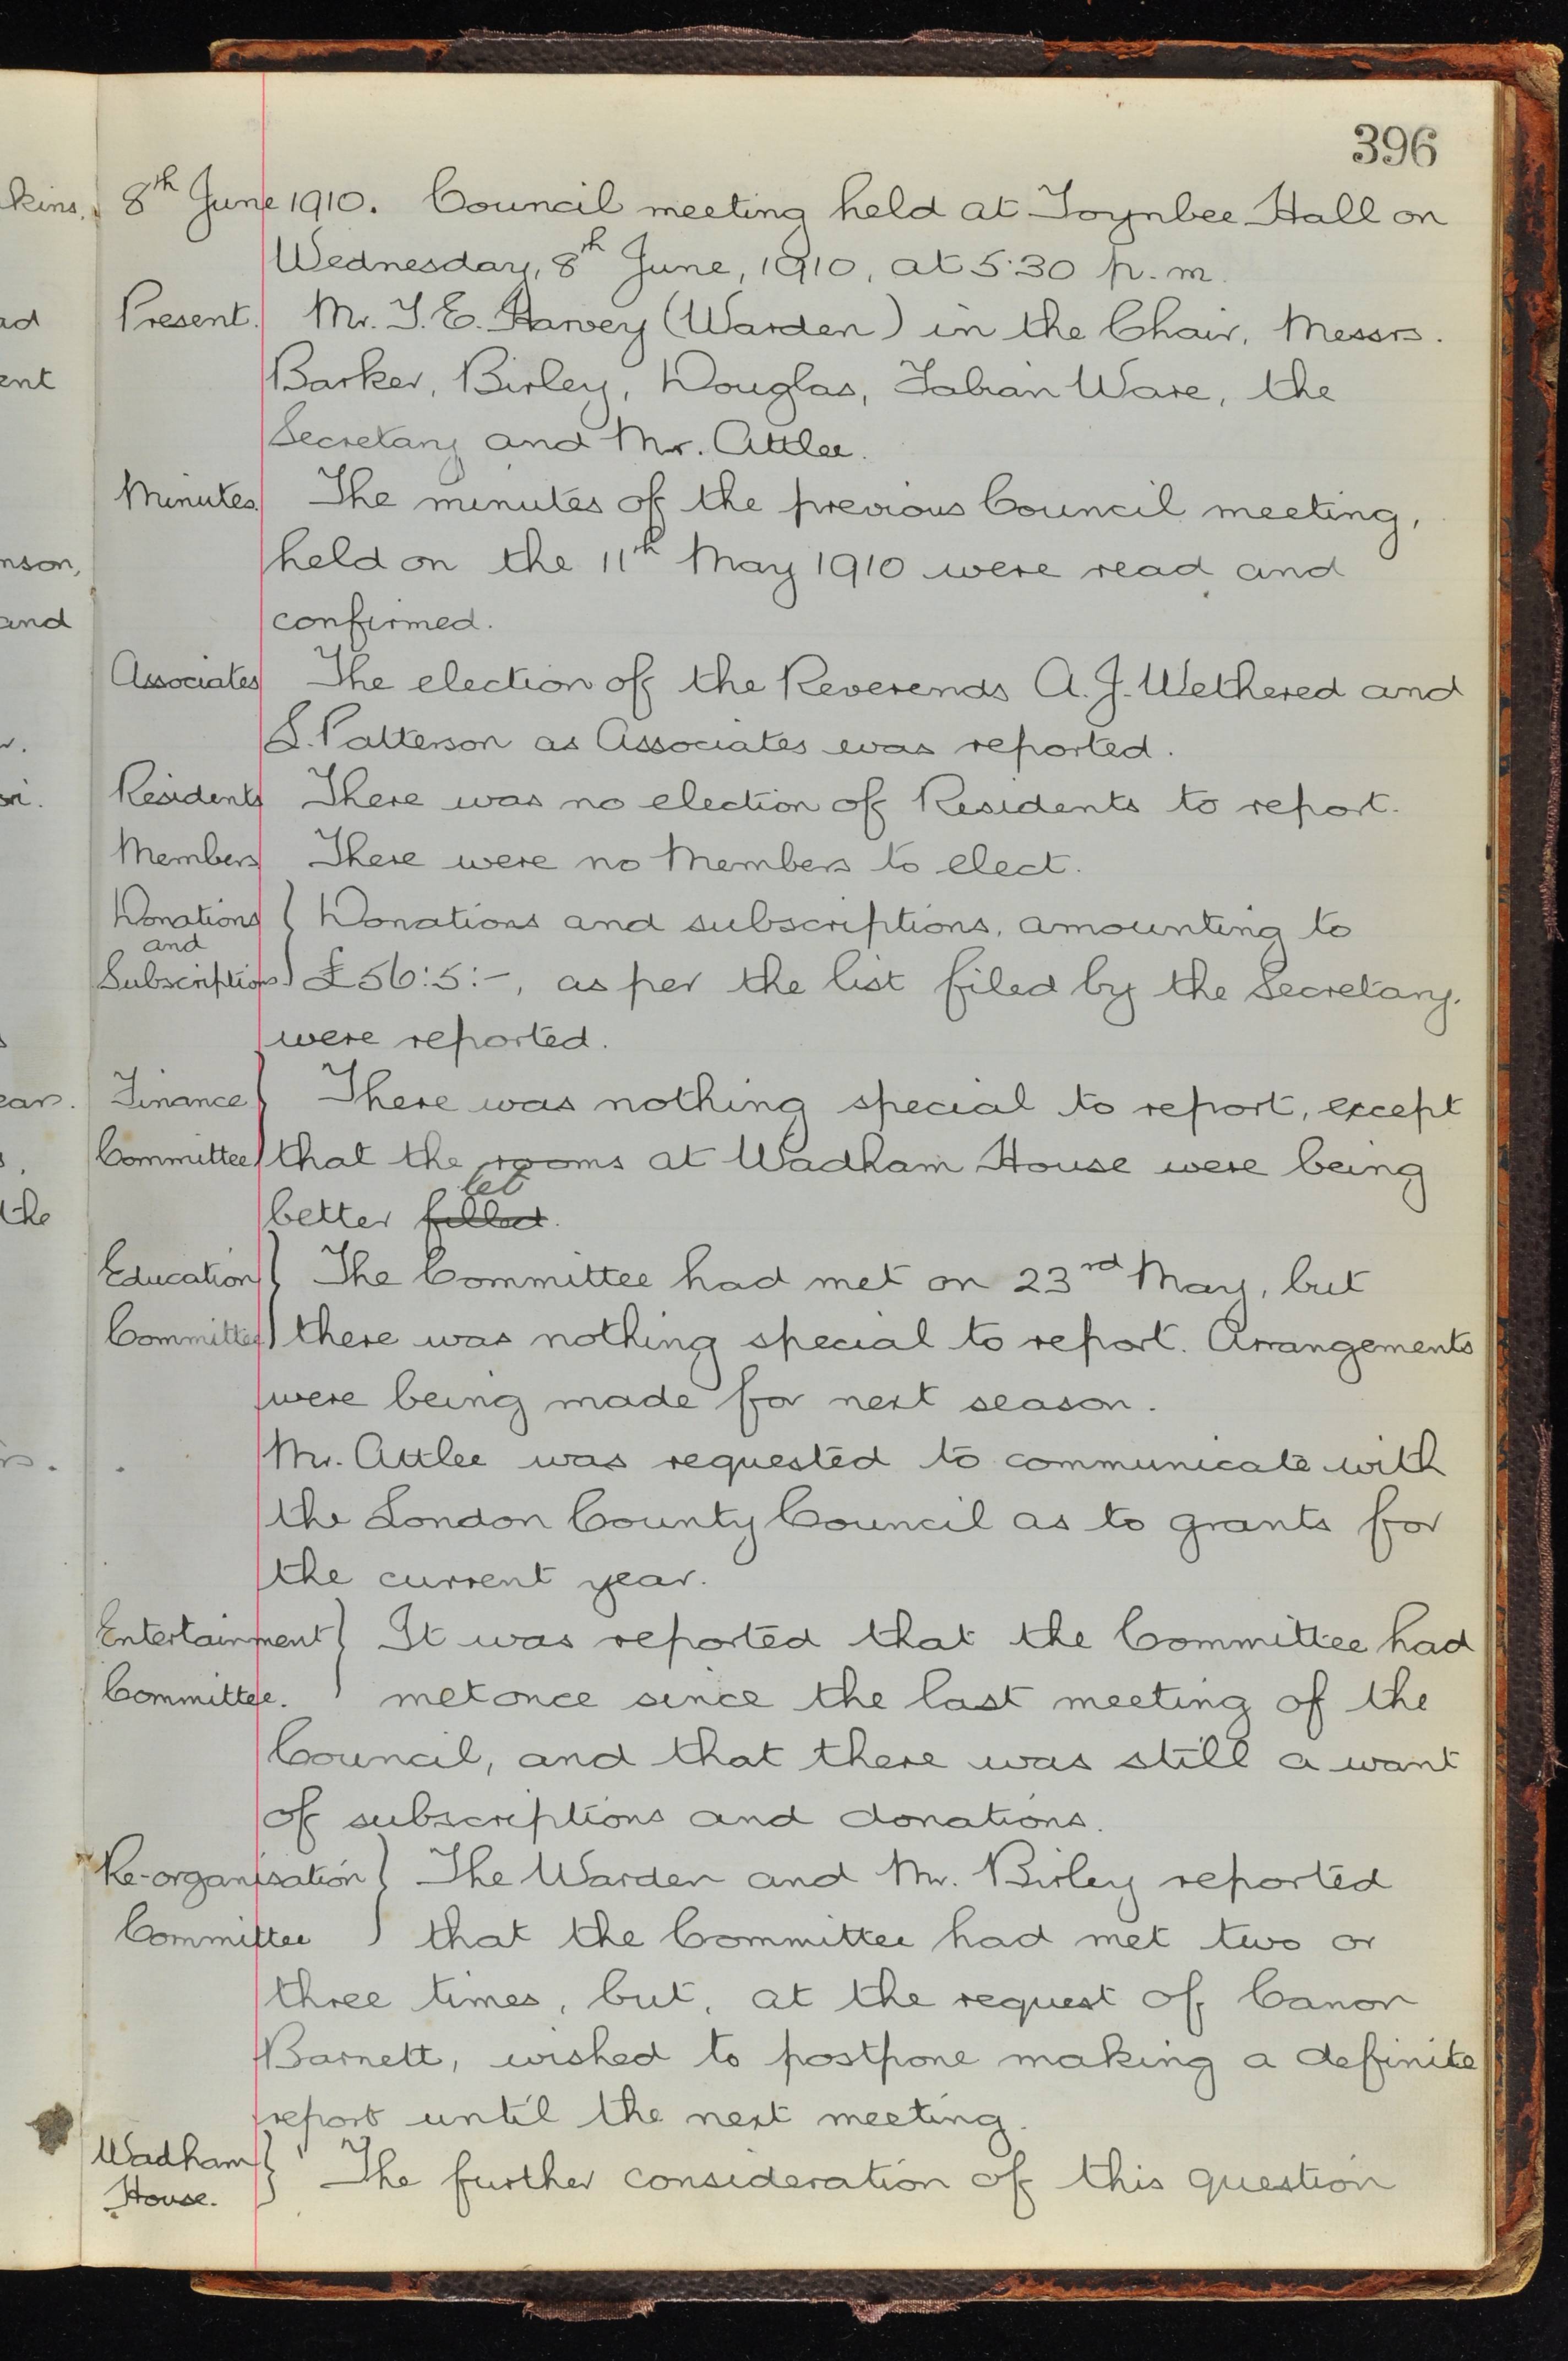 396
kins, 8th June 1910. Council meeting held at Toynbee Hall on
Wednesday, 8th June, 1910, at 5.30 p.m.
ad Present. Mr. T. E. Harvey (Warden) in the Chair, Messrs.
ent Barker, Birley, Douglas, Fabian Ware, the
Secretary and Mr. Attlee.
Minutes. The minutes of the previous Council meeting,
nson, held on the 11th May 1910 were read and
and confirmed.
Associates The election of the Reverends A. J. Wethered and
S. Patterson as Associates was reported.
Residents There was no election of Residents to report.
Members There were no Members to elect.
Donations Donations and subscriptions, amounting to
and
Subscriptions £56:5:-, as per the list filed by the Secretary,
were reported.
ean. Finance There was nothing special to report, except
Committee that the rooms at Wadham House were being
let
the better filled.
Education The Committee had met on 23rd May, but
Committee there was nothing special to report. Arrangements
were being made for next season.
Mr. Attlee was requested to communicate with
the London County Council as to grants for
the current year.
Entertainment It was reported that the Committee had
Committee. met once since the last meeting of the
Council, and that there was still a want
of subscriptions and donations.
Re-organisation The Warden and Mr. Birley reported
Committee that the Committee had met two or
three times, but, at the request of Canon
Barnett, wished to postpone making a definite
report until the next meeting.
Wadham The further consideration of this question
House.